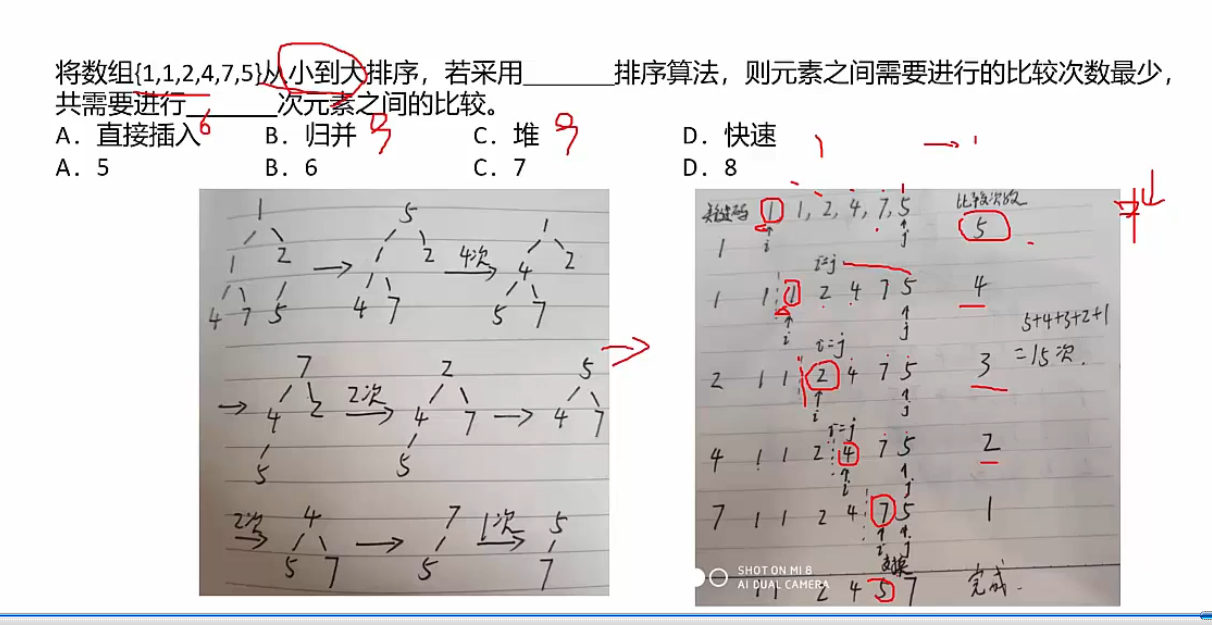 将数组{1,1,2,4,7,5}从小到大排序，若采用_______排序算法，则元素之间需要进行的比较次数最少，
共需要进行_______次元素之间的比较。
A．直接插入 6 B．归并 9 C．堆 9 D．快速
A．5 B．6 C．7 D．8
1
1 2
4 7 5
5
1 2
4 7
4次
1
4 2
5 7
7
4 2
5
2次
2
4 7
5
5
4 7
2次
4
5 7
7
5
1次
5
7
1 1, 2, 4, 7, 5 比较次数
1 i j 5
i=j
1 1 1 2 4 7 5 4
i j
5+4+3+2+1
=15次.
i=j
2 1 1 2 4 7 5 3
i j
i=j
4 1 1 2 4 7 5 2
i j
7 1 1 2 4 7 5 1
i j
交换
1 1 2 4 5 7 完成.
SHOT ON MI 8
AI DUAL CAMERA